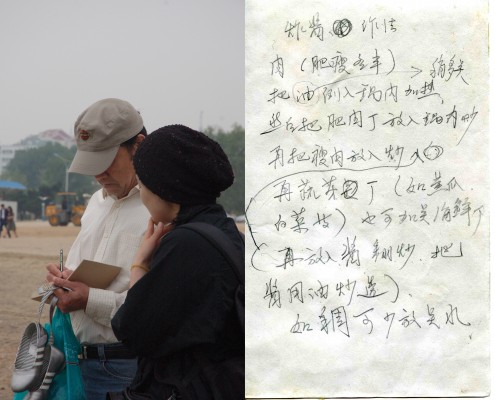 炸酱 作法
肉(肥瘦各半) 稍多
把油倒入锅内加热,
然后把肥肉丁放入锅内炒
再把瘦肉放入炒
再蔬菜丁(如黄瓜,
白菜)也可加点海鲜丁
(再放入酱翻炒.把
酱用油炒透).
如稠可少放点水.